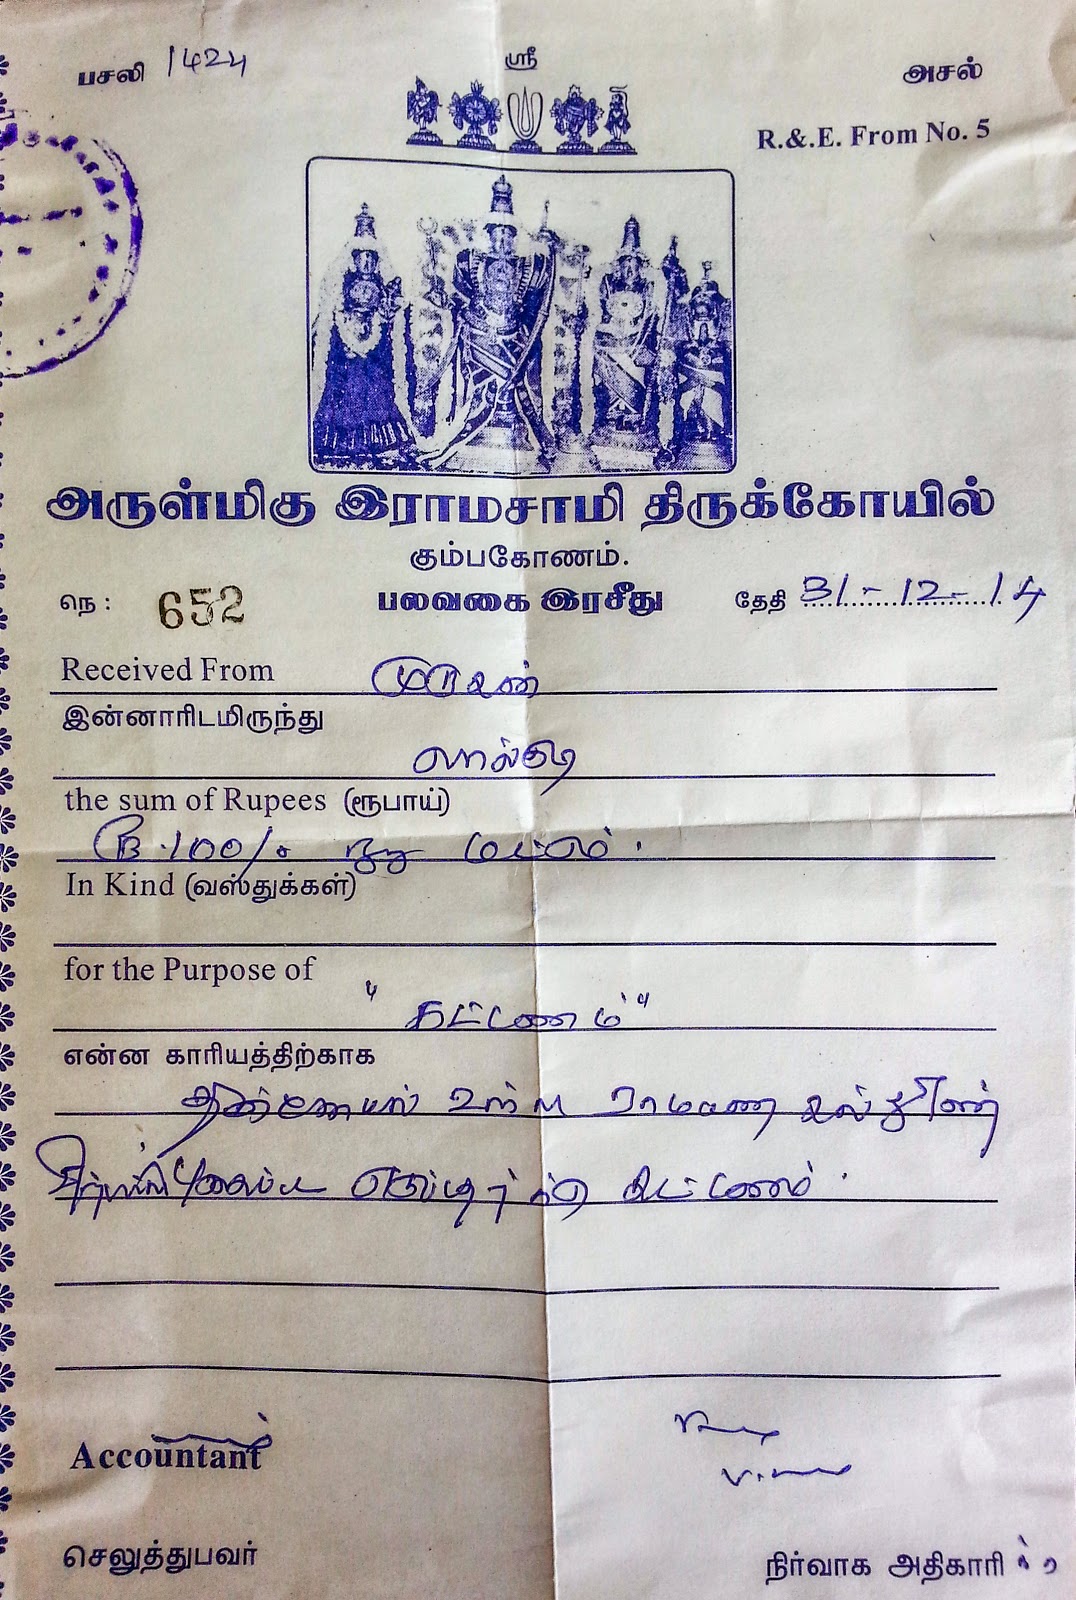 ஸ்ரீ
பசலி 1424
அசல்
R.&.E. From No. 5
அருள்மிகு இராமசாமி திருக்கோயில்
கும்பகோணம்.
நெ : 652 பலவகை இரசீது தேதி 31-12-14
Received From முருகன்
இன்னாரிடமிருந்து
லால்குடி
the sum of Rupees (ரூபாய்)
ரூ.100/- நூறு மட்டும்.
In Kind (வஸ்துக்கள்)
for the Purpose of
"கட்டணம்"
என்ன காரியத்திற்காக
உள்ள ராமாயண
கட்டணம்.
Accountant
செலுத்துபவர்
நிர்வாக அதிகாரி